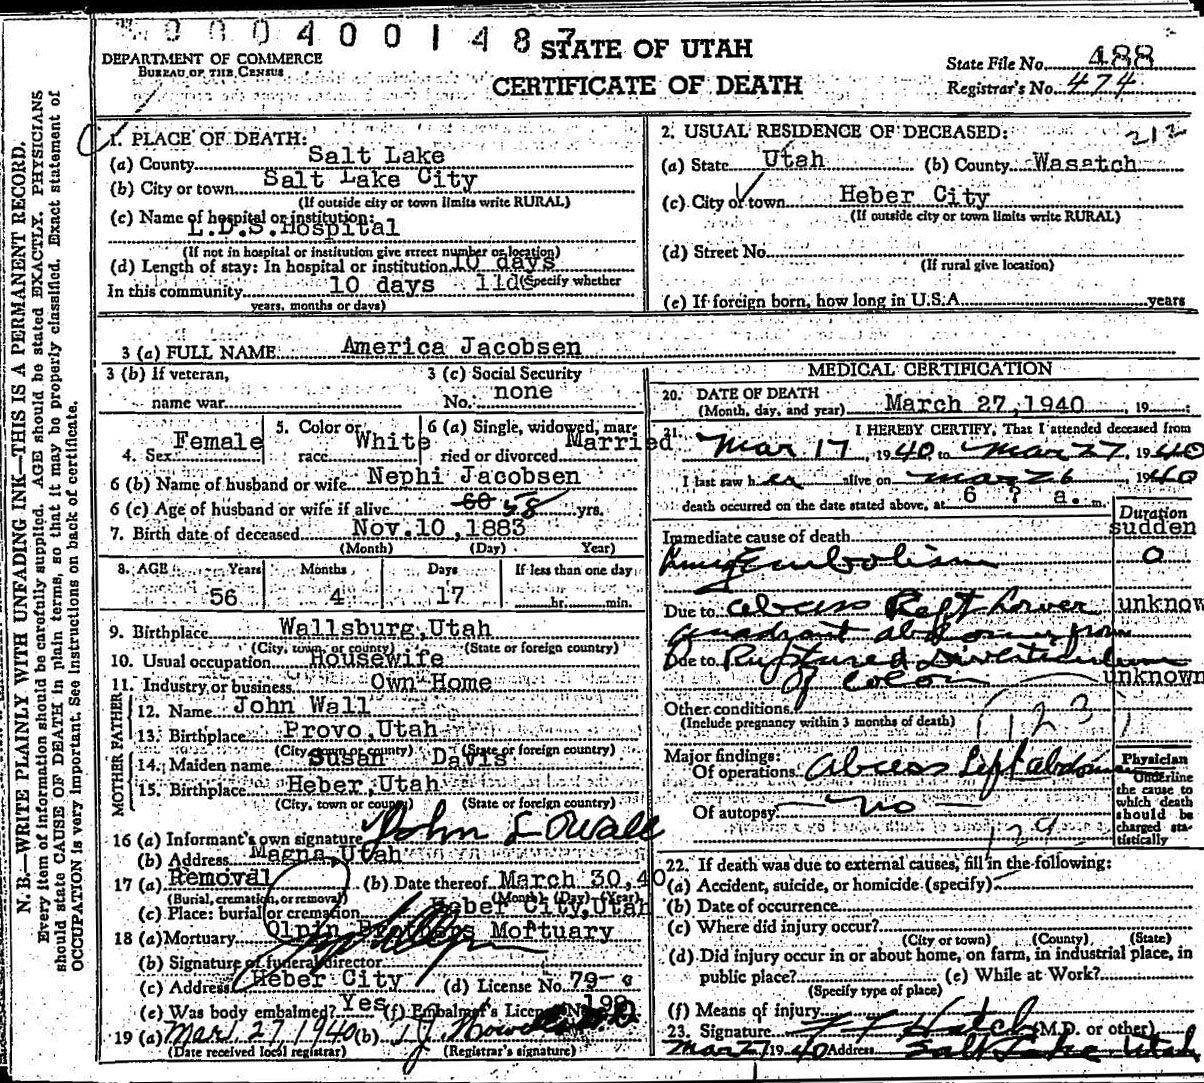 0004001487
STATE OF UTAH
CERTIFICATE OF DEATH
DEPARTMENT OF COMMERCE
BUREAU OF THE CENSUS
State File No. 488
Registrar's No. 474
N. B.—WRITE PLAINLY WITH UNFADING INK—THIS IS A PERMANENT RECORD.
Every item of information should be carefully supplied. AGE should be stated EXACTLY. PHYSICIANS
should state CAUSE OF DEATH in plain terms, so that it may be properly classified. Exact statement of
OCCUPATION is very important. See instructions on back of certificate.
1. PLACE OF DEATH:
(a) County Salt Lake
(b) City or town Salt Lake City
(If outside city or town limits write RURAL)
(c) Name of hospital or institution:
L.D.S. Hospital
(If not in hospital or institution give street number or location)
(d) Length of stay: In hospital or institution 10 days
In this community 10 days 11ds (Specify whether
years, months or days)
2. USUAL RESIDENCE OF DECEASED: 212
(a) State Utah (b) County Wasatch
(c) City or town Heber City
(If outside city or town limits write RURAL)
(d) Street No.
(If rural give location)
(e) If foreign born, how long in U.S.A. years
3 (a) FULL NAME America Jacobsen
3 (b) If veteran, 3 (c) Social Security
name war No. none
4. Sex Female 5. Color or race White 6 (a) Single, widowed, mar-
ried or divorced Married
6 (b) Name of husband or wife Nephi Jacobsen
6 (c) Age of husband or wife if alive 60 58 yrs.
7. Birth date of deceased Nov. 10, 1883
(Month) (Day) Year)
8. AGE Years Months Days If less than one day
56 4 17 hr. min.
9. Birthplace Wallsburg, Utah
(City, town, or county) (State or foreign country)
10. Usual occupation Housewife
11. Industry or business Own Home
FATHER
12. Name John Wall
13. Birthplace Provo, Utah
(City, town or county) (State or foreign country)
MOTHER
14. Maiden name Susan Davis
15. Birthplace Heber, Utah
(City, town or county) (State or foreign country)
16 (a) Informant's own signature John L Wall
(b) Address Magna, Utah
17 (a) Removal (b) Date thereof March 30, 40
(Burial, cremation, or removal) (Month) (Day) (Year)
(c) Place: burial or cremation Heber City, Utah
18 (a) Mortuary Olpin Brothers Mortuary
(b) Signature of funeral director
(c) Address Heber City (d) License No. 79
(e) Was body embalmed? Yes (f) Embalmer's License No. 199
19 (a) Mar. 27, 1940 (b)
(Date received local registrar) (Registrar's signature)
MEDICAL CERTIFICATION
20. DATE OF DEATH
(Month, day, and year) March 27, 1940, 19
21. I HEREBY CERTIFY, That I attended deceased from
Mar 17, 1940 to Mar 27, 1940
I last saw her alive on Mar 26 1940
death occurred on the date stated above, at 6 ? a. m.
Duration
Immediate cause of death sudden
Embolism 0
Due to abcess Left Lower unknow
quadrant abdomen from
Due to Ruptured Diverticulum
of colon unknown
Other conditions
(Include pregnancy within 3 months of death)
123
Major findings:
Of operations Abcess Left abdomen
Of autopsy no
129
Physician
Underline
the cause to
which death
should be
charged sta-
tistically
22. If death was due to external causes, fill in the following:
(a) Accident, suicide, or homicide (specify)
(b) Date of occurrence
(c) Where did injury occur?
(City or town) (County) (State)
(d) Did injury occur in or about home, on farm, in industrial place, in
public place? (e) While at Work?
(Specify type of place)
(f) Means of injury
23. Signature Hatch (M.D. or other)
Mar 27 1940 Address Salt Lake Utah